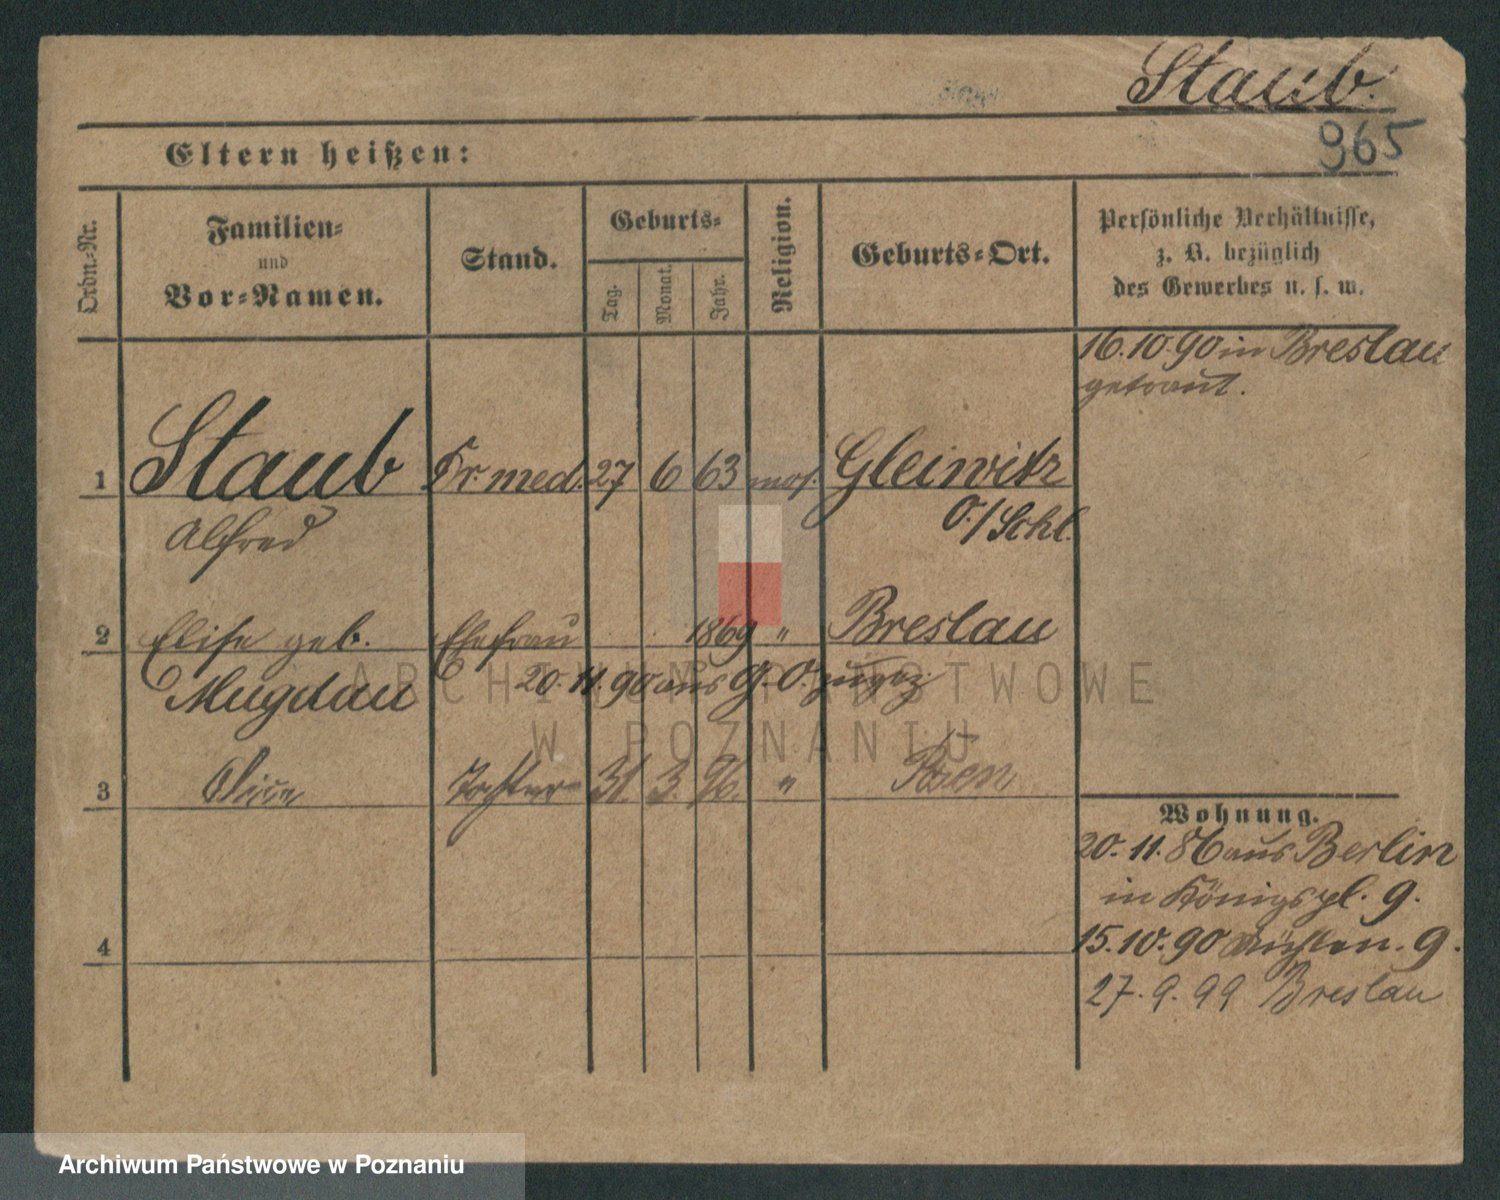 Staub.
965
Eltern heißen:
Ordn.-Nr.
Familien-
und
Vor-Namen.
Stand.
Geburts-
Tag.
Monat.
Jahr.
Religion.
Geburts-Ort.
Persönliche Verhältnisse,
z. B. bezüglich
des Gewerbes u. s. w.
16.10.90 in Breslau
getraut.
1 Staub Dr. med. 27 6 63 mos. Gleiwitz
Alfred O./Schl.
2 Elise geb. Ehefrau 1869 " Breslau
Mugdau 20.11.90 aus G. O. zugez.
3 Tochter 31. 3. 96. " Posen
4
Wohnung.
20.11.86 aus Berlin
in Königspl. 9.
15.10.90 9.
27.9.99 Breslau
ARCHIWUM PAŃSTWOWE
W POZNANIU
Archiwum Państwowe w Poznaniu